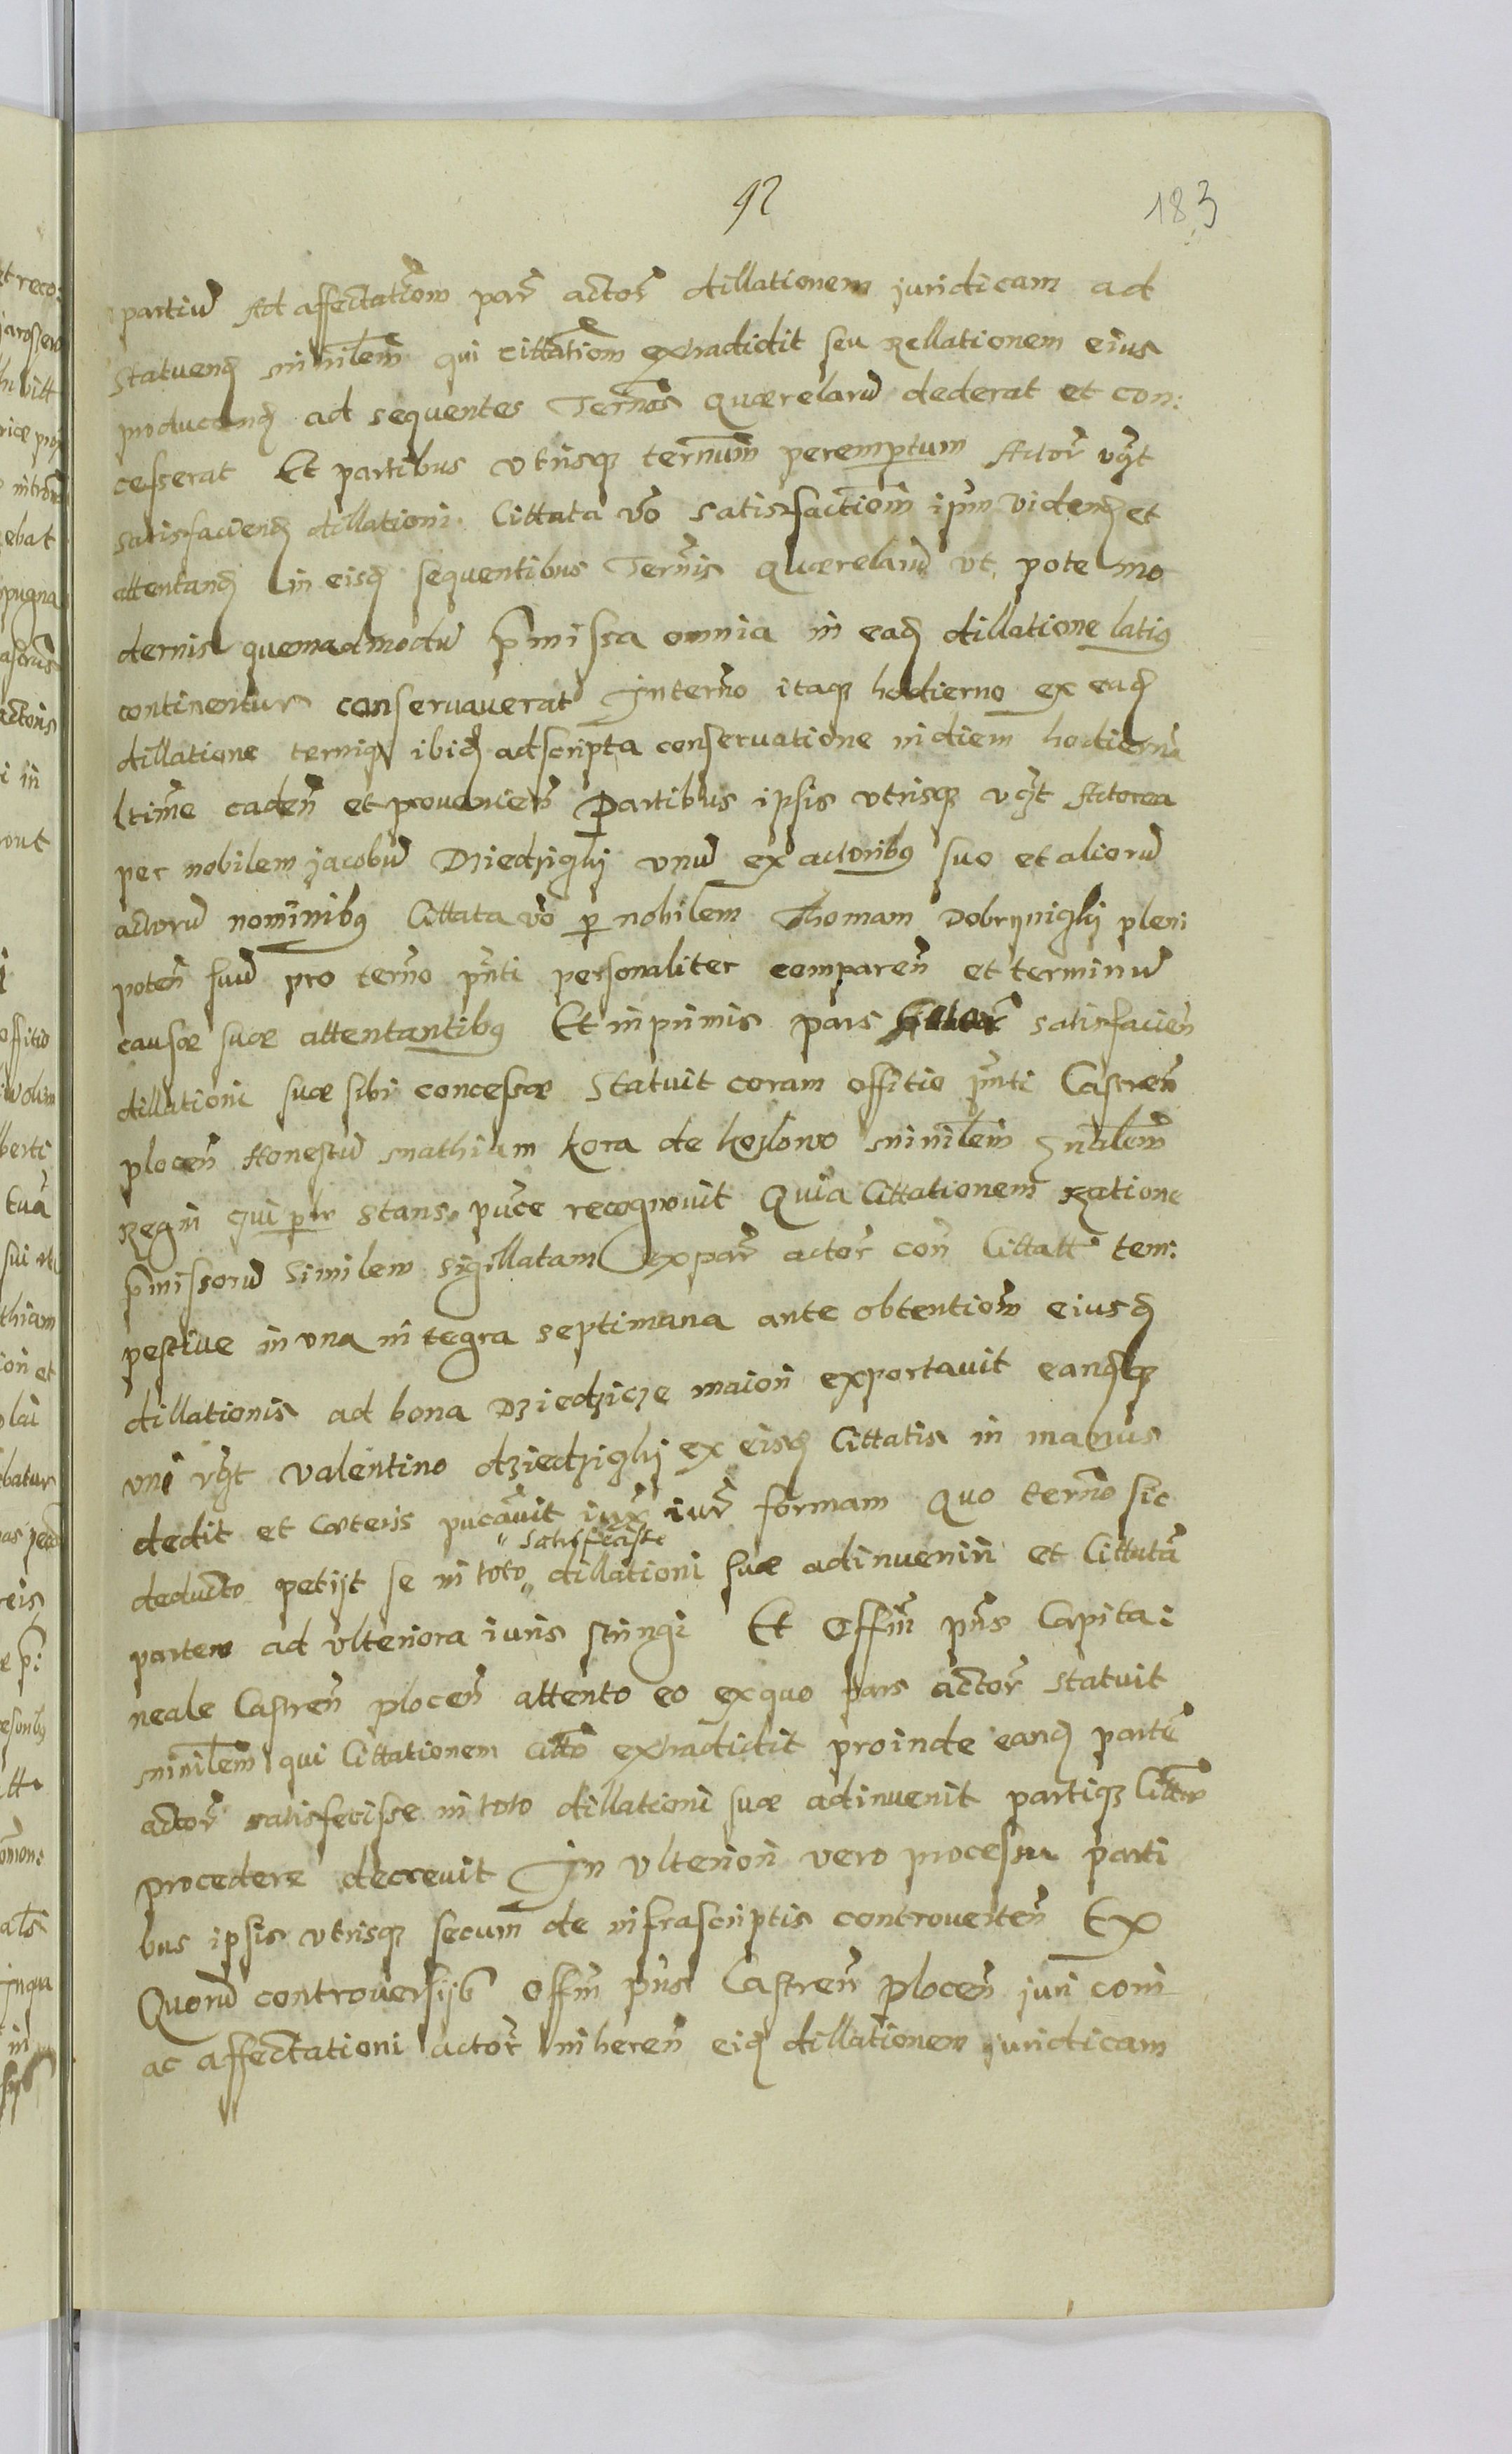 92
183
partiu̅ Ad affectatiom̅ par̅ actor̅ dillationem juridicam ad
statuend̅ minilem̅ qui cittatiom̅ extradidit seu Rellationem eius
producend̅ ad sequentes Termos̅ Quærelaru̅ dederat et con:
cesserat Et partibus utrisq; termum̅ peremptum Actor̅ vg̅t
satisfaciend̅ dillationi Cittata vo̅ satisfactiom̅ ipm̅ videnď et
attentanď in eisď sequentibus Termis̅ Quærelaru̅ ut pote mo
dernis quemadmodu̅ p̅missa omnia in eaď dillatione latiꝰ
continentur conservaverat In termo̅ itaq; hodierno ex eaď
dillatione termiq;̅ ibiď adscripta conservatione in diem hodierna̅
ltime̅ caden̅ et provenien̅ Partibus ipsis utrisq; vg̅t Actorea
per nobilem jacobu̅ Dziedzighj unu̅ ex actoribꝰ suo et alioru̅
actoru̅ nominibꝰ Cittata vo̅ ꝑ nobilem Thomam Dobrynighj pleni
poten̅ suu̅ pro termo̅ pn̅ti personaliter comparen̅ et terminu̅
causæ suæ attentantibꝰ Et inprimis pars satisfacien̅
dillationi suæ sibi concessæ Statuit coram offitio pn̅ti Castren̅
plocen̅ Honestu̅ Mathiam Kora de Kozlowo minilem̅ gn̅alem̅
Regni qui ꝑr stans puce̅ recognovit Quia Cittationem Ratione
p̅missoru̅ Similem sigillatam ex par̅ actor̅ con̅ Cittatt tem:
pestive in una integra septimana ante obtentiom̅ eiusď
dillationis ad bona Dziedzicze maion̅ exportavit eanďq;
uni vg̅t Valentino dziedzighj ex eisď Cittatis in manus
dedit et cæteris pucavit̅ iux̅ iur̅ formam Quo termo̅ sic
deducto petijt se in toto " satisfecisse " dillationi suæ adinveniri et Cittata̅
partem ad ulteriora iuris stringi Et Offm̅ pn̅s Capita:
neale Castren̅ plocen̅ attento eo ex quo pars actor̅ statuit
minilem̅ qui Cittationem citto̅ extradidit proinde eanď parte̅
actor̅ satisfecisse in toto dillationi suæ adinvenit partiq; Citta̅
procedere decrevit In ulteriori vero processu parti
bus ipsis utrisq; secum de infrascriptis controverten̅ Ex
Quoru̅ controversijs Offm̅ pn̅s Castren̅ Plocen̅ juri com̅i
ac affectationi actor̅ inheren̅ eiď dillationem juridicam